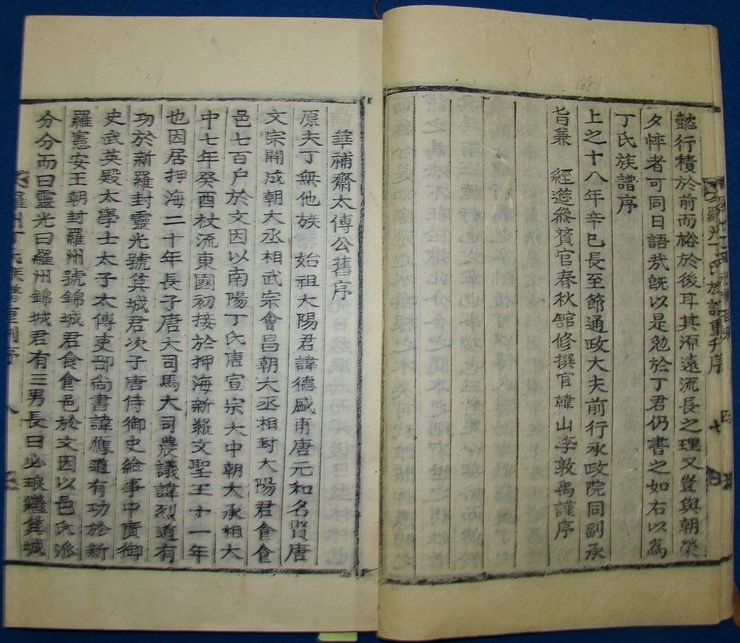 懿行積於前而裕於後耳其源遠流長之理又豈與朝榮
夕悴者可同日語哉旣以是勉於丁君仍書之如右以爲
丁氏族譜序
上之十八年辛巳長至節通政大夫前行承政院同副承
旨兼 經筵叅贊官春秋館修撰官韓山李敦禹謹序
華補齋太傅公舊序
原夫丁無他族 始祖大陽君諱德盛甫唐元和名賢唐
文宗開成朝大丞相武宗會昌朝大丞相封大陽君食食
邑七百户於文因以南陽丁氏唐宣宗大中朝大承相大
中七年癸酉杖流東國初接於押海新羅文聖王十一年
也因居押海二十年長子唐大司馬大司農議諱烈道有
功於新羅封靈光號箕城君次子唐侍御史給事中廣御
史武英殿太學士太子太傅吏部尙書諱應道有功於新
羅憲安王朝封羅州號錦城君食食邑於文因以邑氏派
分分而曰靈光曰羅州錦城君有三男長曰必琅繼箕城
羅州丁氏族譜重刊序